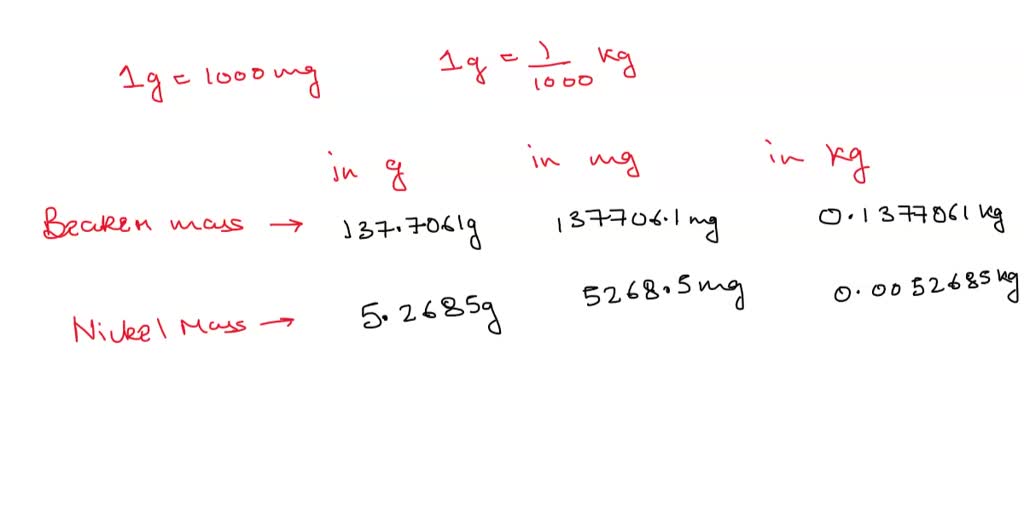 1g = 1000 mg 1g = 1/1000 kg
in g in mg in kg
Beaker mass → 137.7061g 137706.1 mg 0.1377061 kg
Nickel Mass → 5.2685g 5268.5 mg 0.0052685 kg